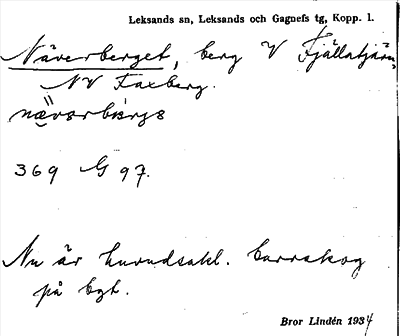 Leksands sn, Leksands och Gagnefs tg, Kopp. l.
Näverberget, berg V Fjällatjärn,
NV Faxberg.
369 G 97.
Nu är huvudsakl. barrskog
på bgt.
Bror Lindén 1934